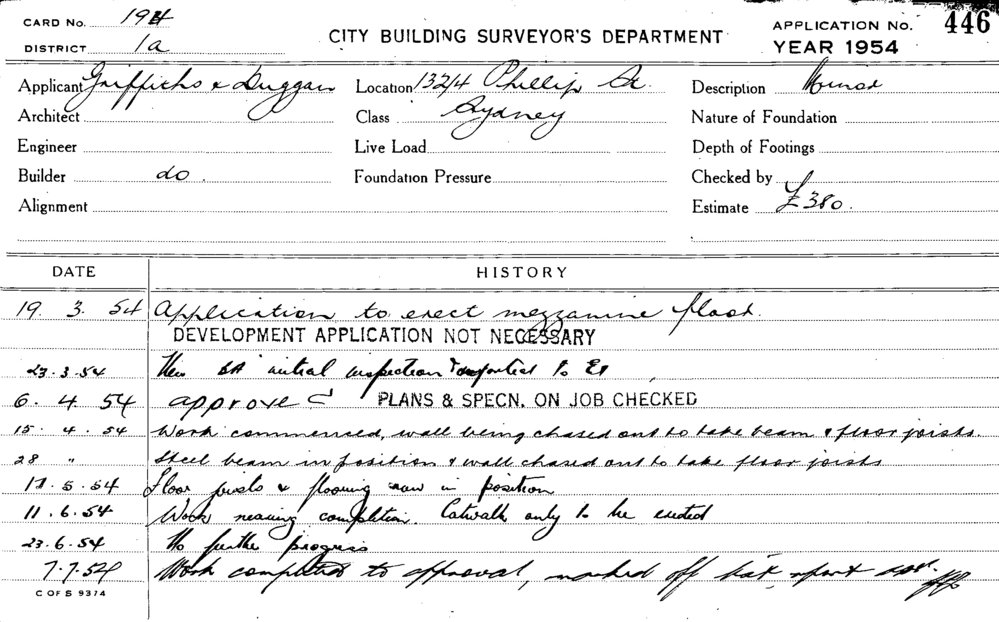 CARD No. 194
DISTRICT 1a
CITY BUILDING SURVEYOR'S DEPARTMENT
APPLICATION No. 446
YEAR 1954
Applicant Griffiths & Duggan Location 132/4 Phillip St. Description Minor
Architect Class Sydney Nature of Foundation
Engineer Live Load Depth of Footings
Builder do. Foundation Pressure Checked by
Alignment Estimate £380.
DATE HISTORY
19. 3. 54 Application to erect mezzanine floor.
DEVELOPMENT APPLICATION NOT NECESSARY
23.3.54 This BA initial inspection & reported to
6. 4. 54 approved PLANS & SPECN. ON JOB CHECKED
15. 4. 54 Work commenced, wall being chased out to take beam & floor joists.
28 " Steel beam in position & wall chased out to take floor joists
17.5.54 Floor joists & flooring now in position
11.6.54 Work nearing completion. Catwalk only to be erected
23.6.54 No further progress
7.7.54 Work completed to approval, marked off report
C OF S 9374